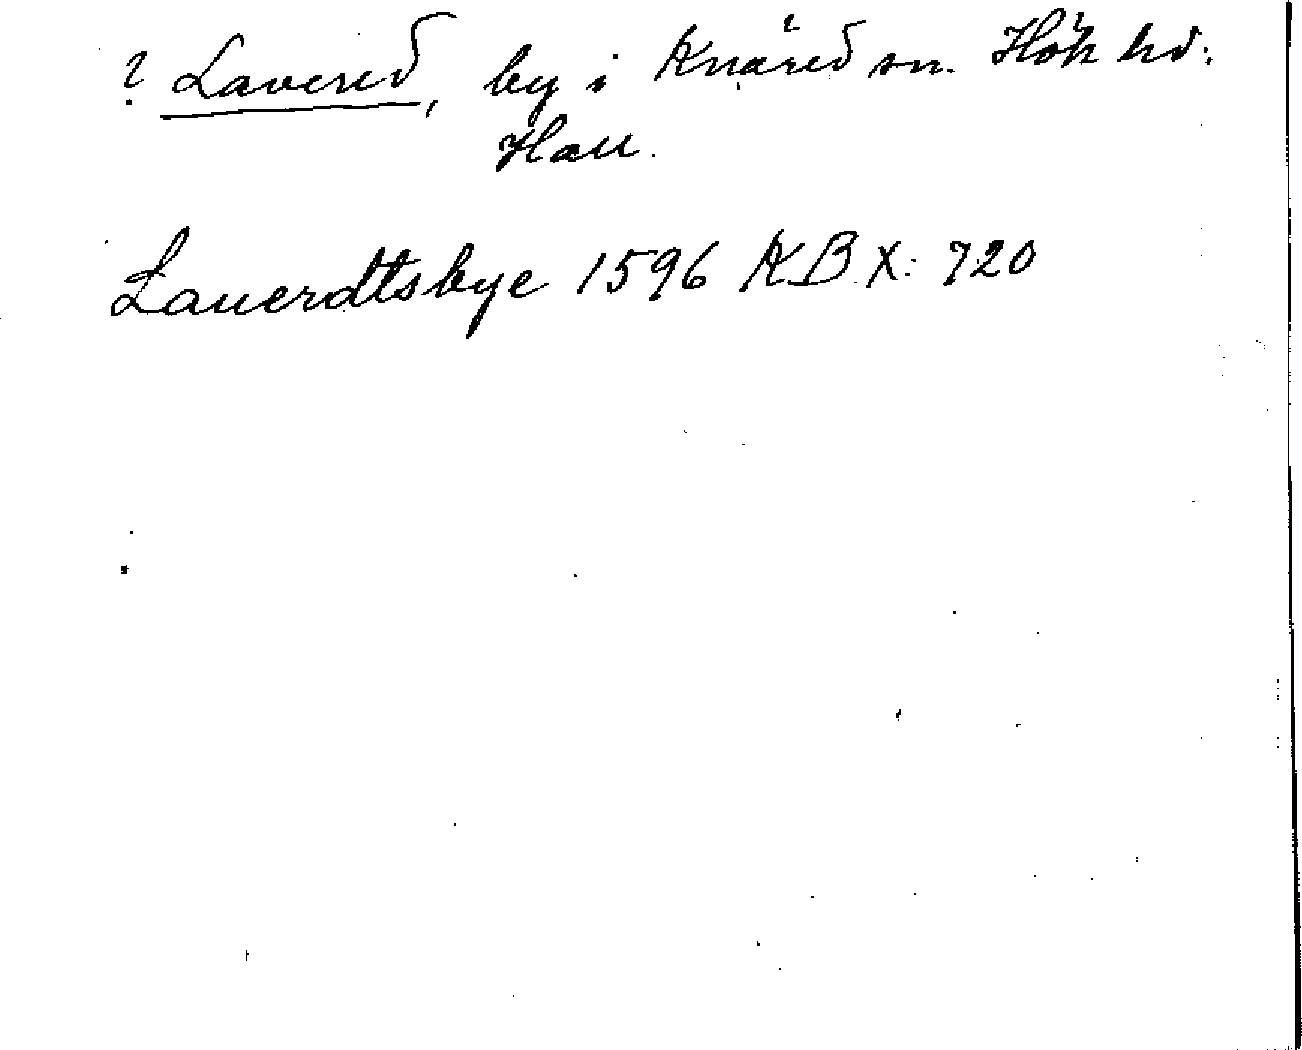 ? Lavered, by i Knäred sn. Hök hd.
Hall.
Lauerdtsbye 1596 KB X: 720